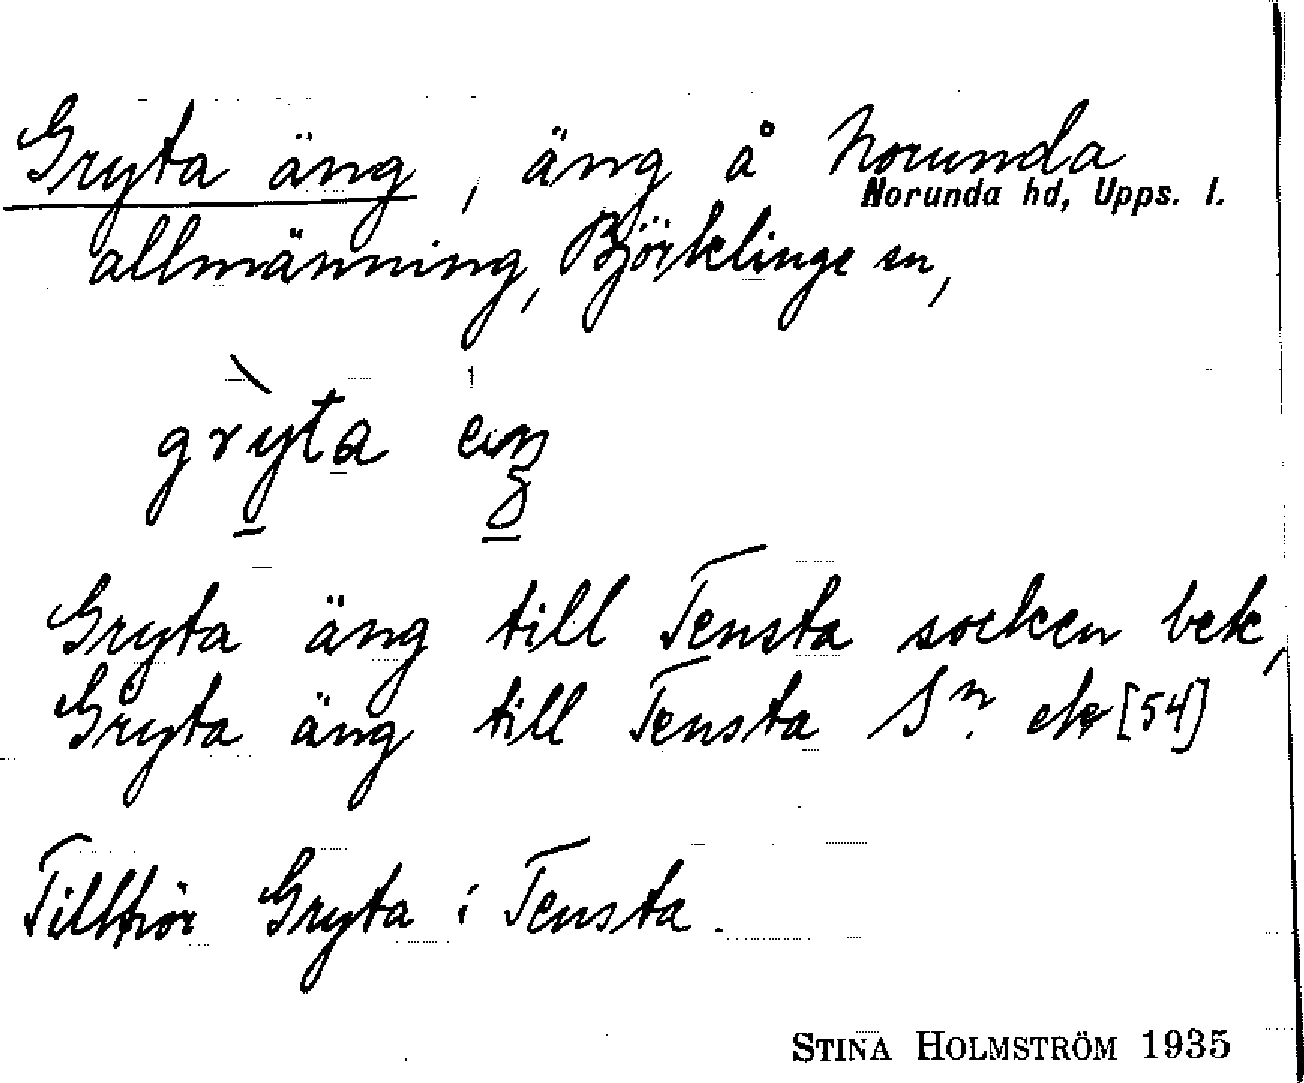 Gryta äng, äng å Norunda
Norunda hd, Upps. l.
allmänning, Björklinge sn,
gryta äŋ
Gryta äng till Tensta socken bek,
Gryta äng till Tensta Sn. ek [54]
Tillhör Gryta i Tensta.
STINA HOLMSTRÖM 1935